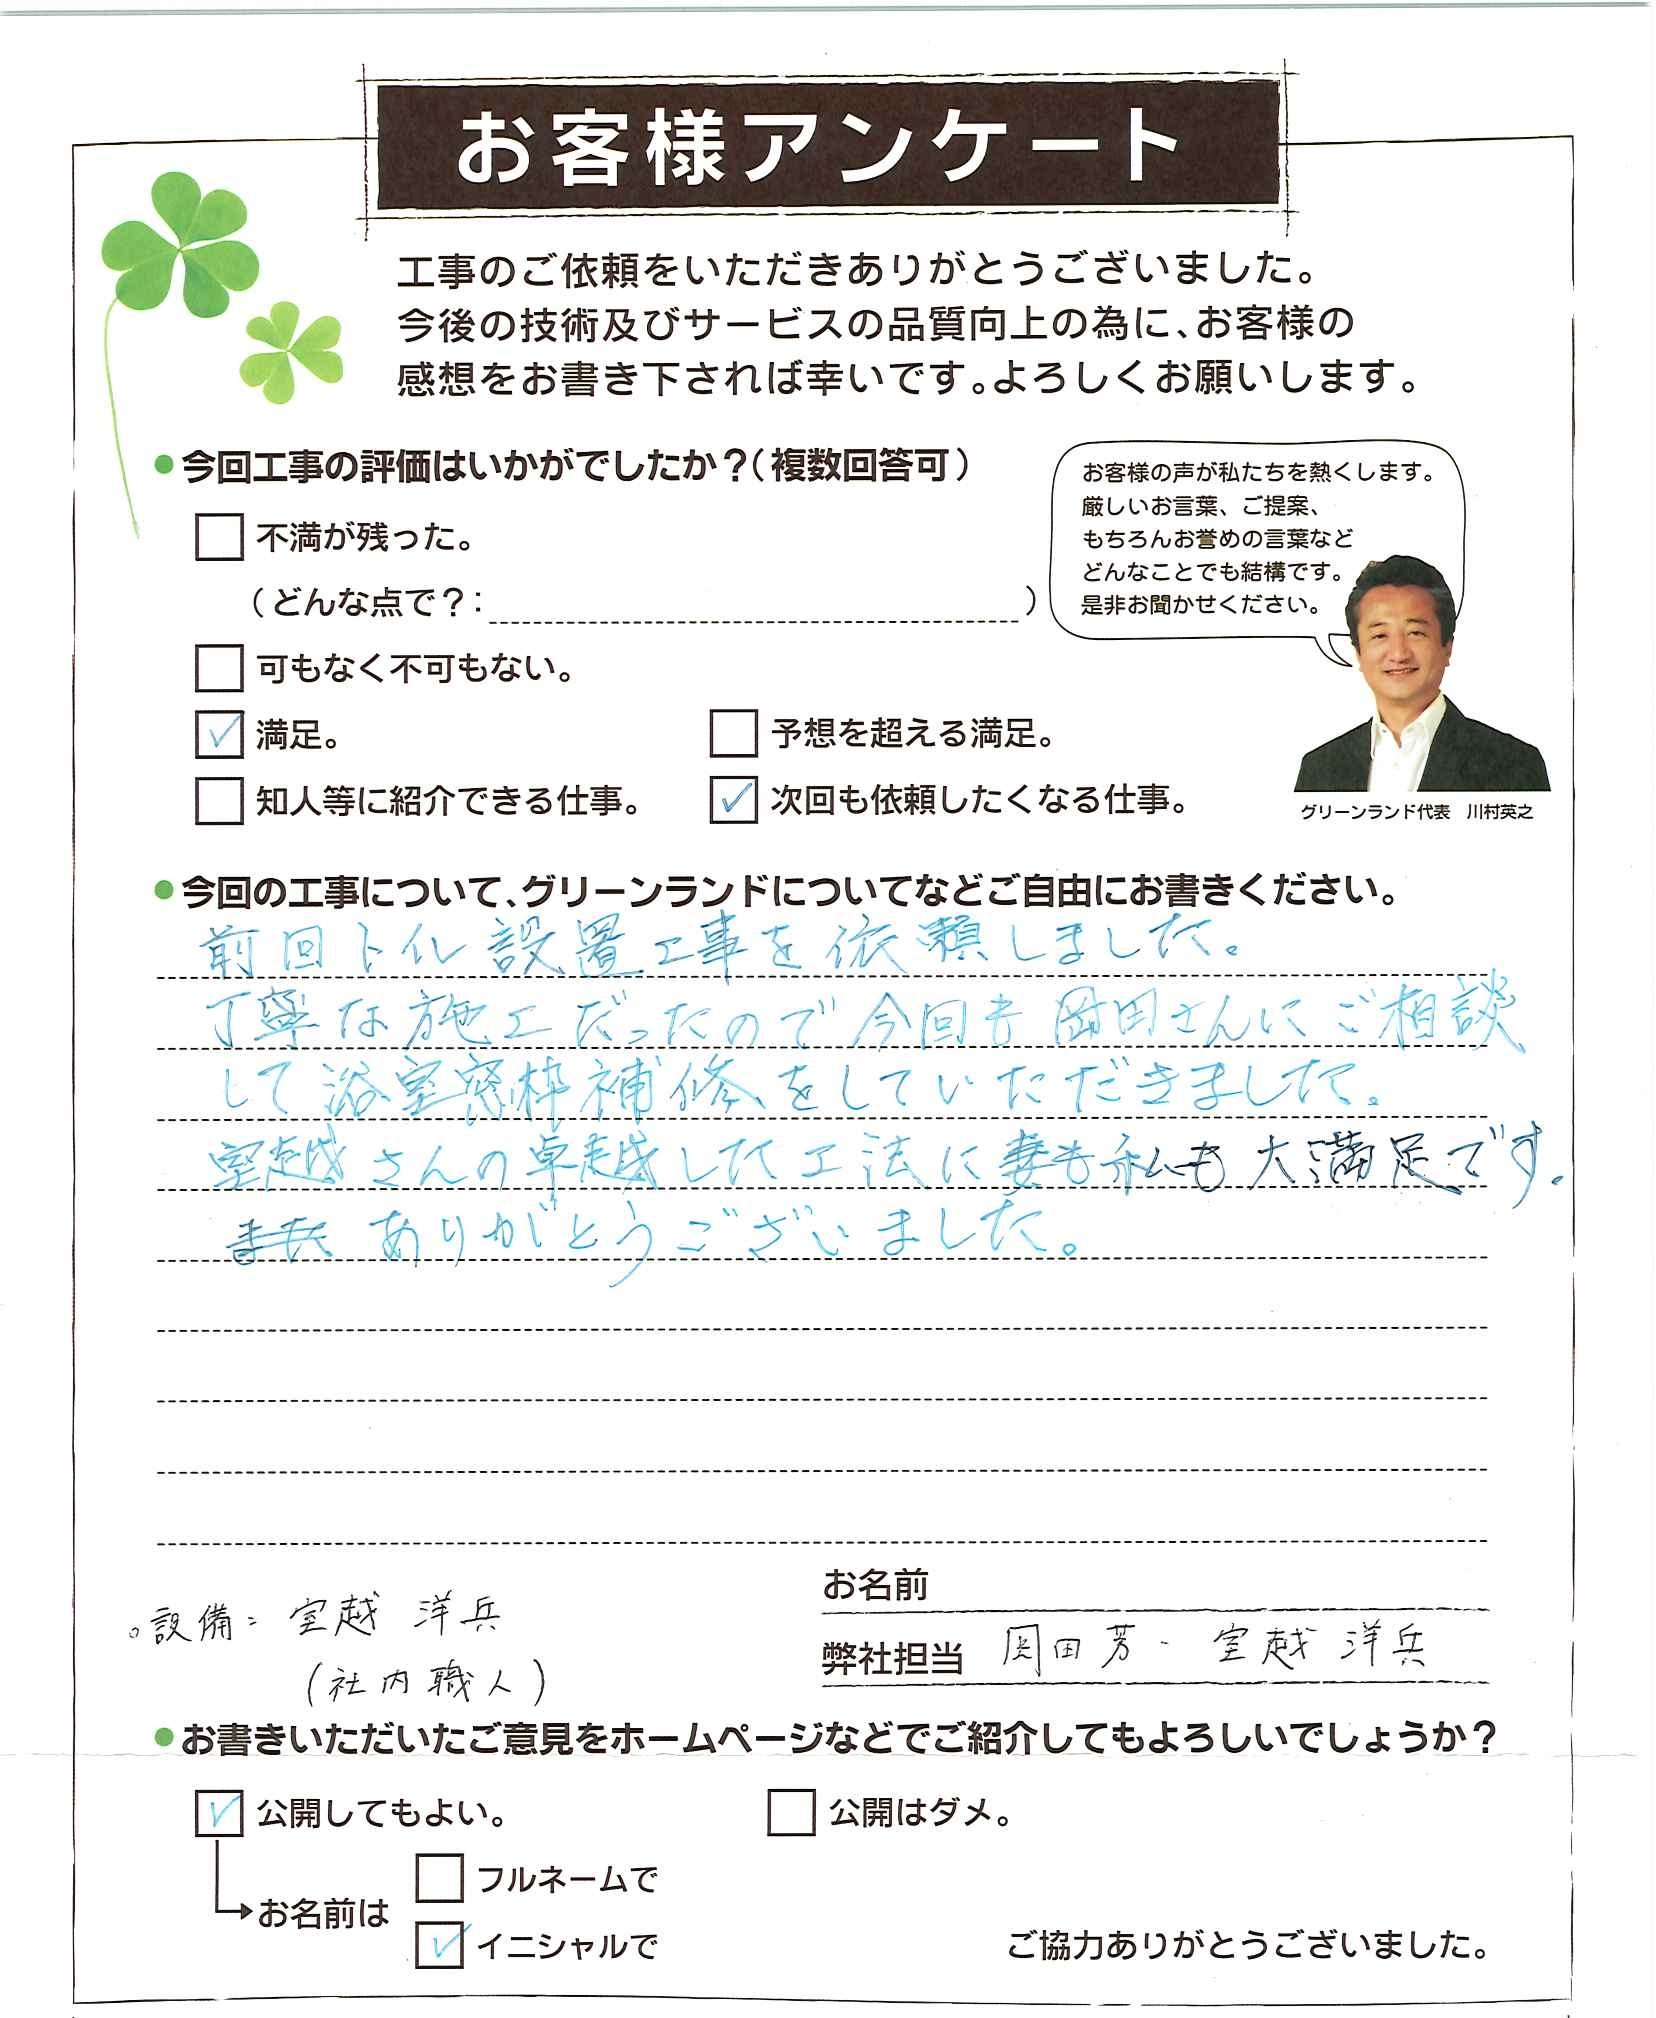 お客様アンケート
工事のご依頼をいただきありがとうございました。
今後の技術及びサービスの品質向上の為に、お客様の
感想をお書き下されば幸いです。よろしくお願いします。
●今回工事の評価はいかがでしたか?(複数回答可)
お客様の声が私たちを熱くします。
厳しいお言葉、ご提案、
もちろんお誉めの言葉など
どんなことでも結構です。
是非お聞かせください。
グリーンランド代表 川村英之
不満が残った。
(どんな点で?: )
可もなく不可もない。
✓ 満足。
予想を超える満足。
知人等に紹介できる仕事。
✓ 次回も依頼したくなる仕事。
●今回の工事について、グリーンランドについてなどご自由にお書きください。
前回トイレ設置工事を依頼しました。
丁寧な施工だったので今回も岡田さんにご相談
して浴室窓枠補修をしていただきました。
室越さんの卓越した工法に妻も私も大満足です。
ありがとうございました。
お名前
。設備:室越 洋兵
(社内職人)
弊社担当 岡田芳・室越 洋兵
●お書きいただいたご意見をホームページなどでご紹介してもよろしいでしょうか?
✓ 公開してもよい。
公開はダメ。
お名前は
フルネームで
✓ イニシャルで
ご協力ありがとうございました。